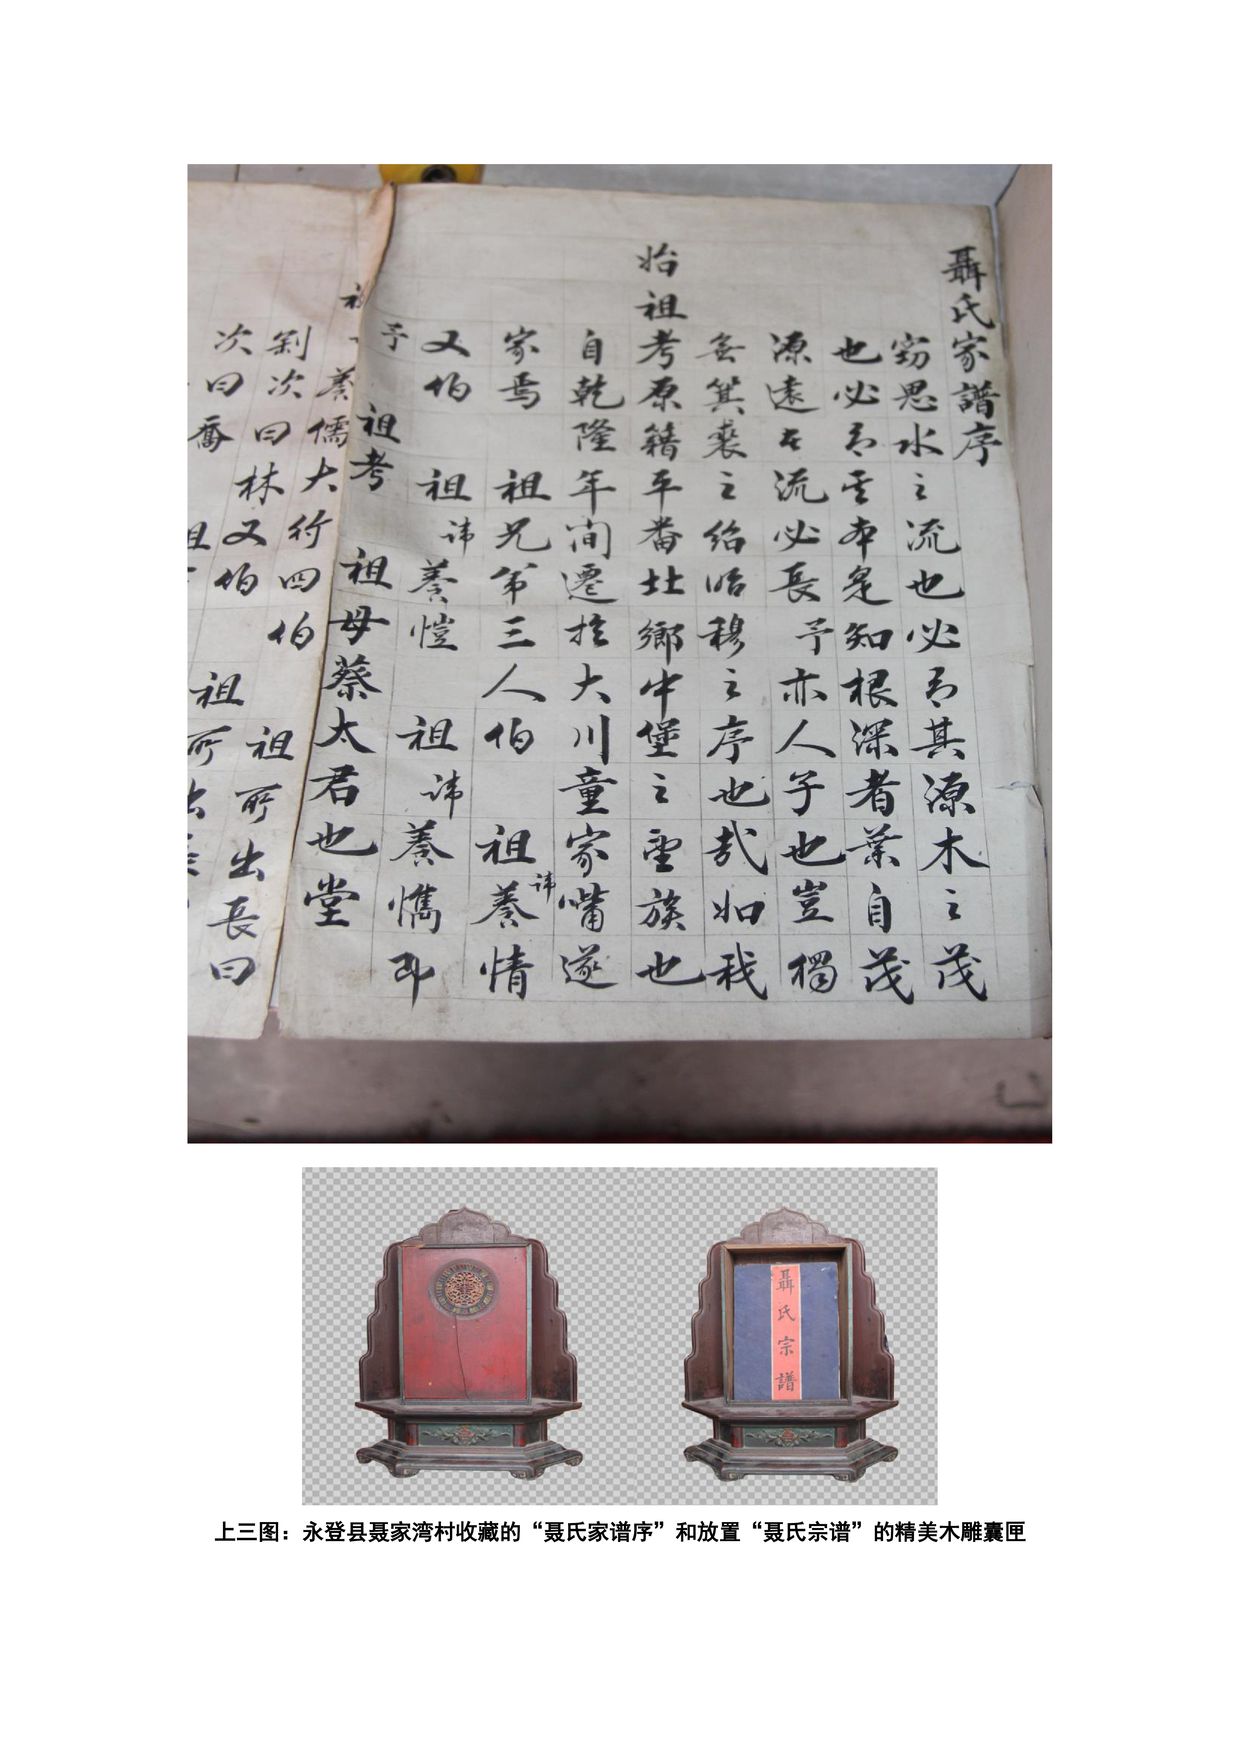 聶氏家譜序
窃思水之流也必有其源木之茂
也必有本是知根深者葉自茂
源遠者流必長予亦人子也豈獨
無箕裘之紹昭穆之序也哉如我
始祖考原籍平番北鄉中堡之望族也
自乾隆年间遷於大川童家嘴遂
家焉 祖兄弟三人伯 祖諱養情
又伯 祖諱養愷 祖諱養懏即
予祖考 祖母蔡太君也堂
養儒大行四伯 祖所出長曰
次曰林又伯 祖所出
次曰奮
聶氏宗譜
上三图：永登县聂家湾村收藏的“聂氏家谱序”和放置“聂氏宗谱”的精美木雕囊匣